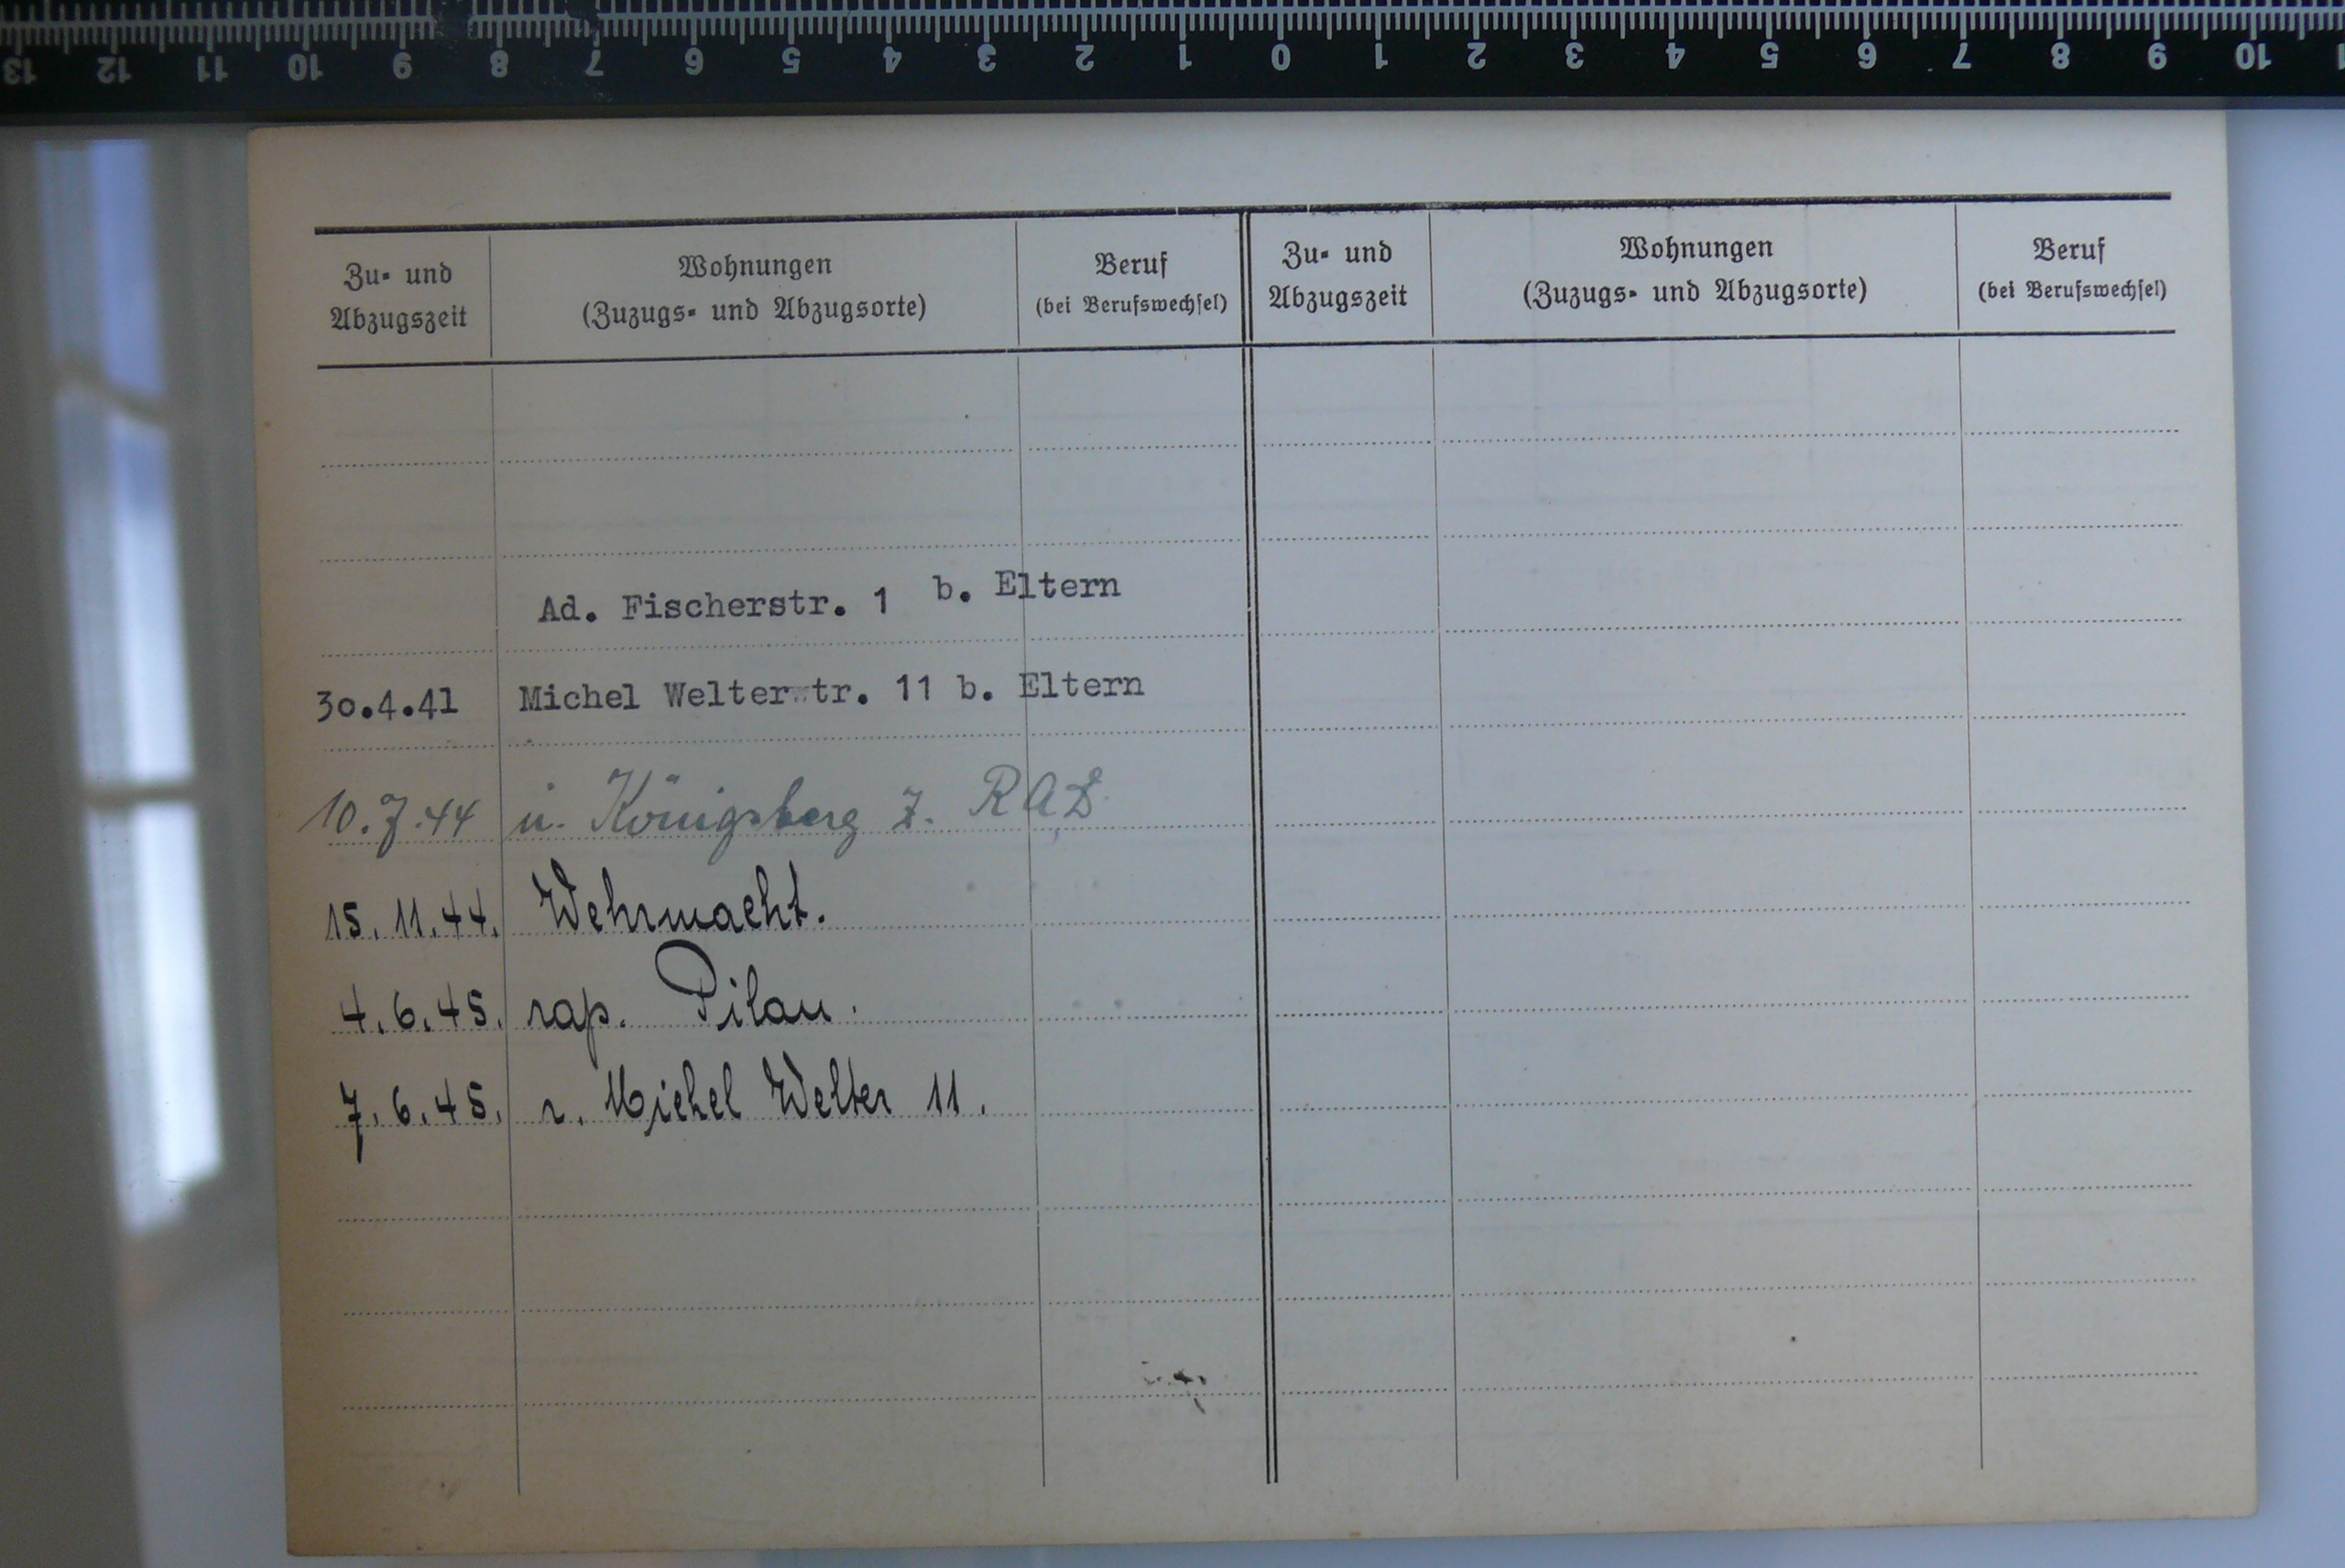 13 12 11 10 9 8 7 6 5 4 3 2 1 0 1 2 3 4 5 6 7 8 9 10
Zu- und Abzugszeit
Wohnungen
(Zuzugs- und Abzugsorte)
Beruf
(bei Berufswechsel)
Zu- und Abzugszeit
Wohnungen
(Zuzugs- und Abzugsorte)
Beruf
(bei Berufswechsel)
Ad. Fischerstr. 1 b. Eltern
30.4.41 Michel Welterstr. 11 b. Eltern
10.7.44 n. Königsberg z. RAD
15.11.44. Wehrmacht.
4.6.45. rap. Pilau.
7.6.45. r. Michel Welter 11.